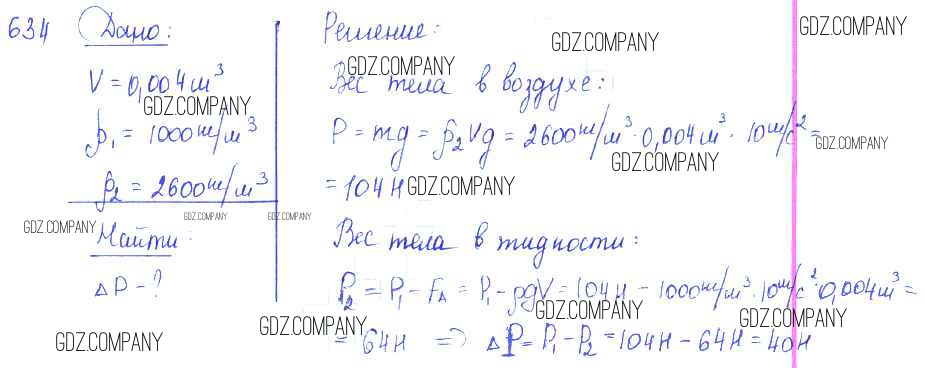 634 Дано:
V = 0,004 м³
ρ₁ = 1000 кг/м³
ρ₂ = 2600 кг/м³
Найти:
ΔP - ?
Решение:
Вес тела в воздухе:
P = mg = ρ₂Vg = 2600 кг/м³ · 0,004 м³ · 10 м/с² =
= 104 Н
Вес тела в жидкости:
P₂ = P₁ - Fᴀ = P₁ - ρgV = 104 Н - 1000 кг/м³ · 10 м/с² · 0,004 м³ =
= 64 Н => ΔP = P₁ - P₂ = 104 Н - 64 Н = 40 Н
GDZ.COMPANY
GDZ.COMPANY
GDZ.COMPANY
GDZ.COMPANY
GDZ.COMPANY
GDZ.COMPANY
GDZ.COMPANY
GDZ.COMPANY
GDZ.COMPANY
GDZ.COMPANY
GDZ.COMPANY
GDZ.COMPANY
GDZ.COMPANY